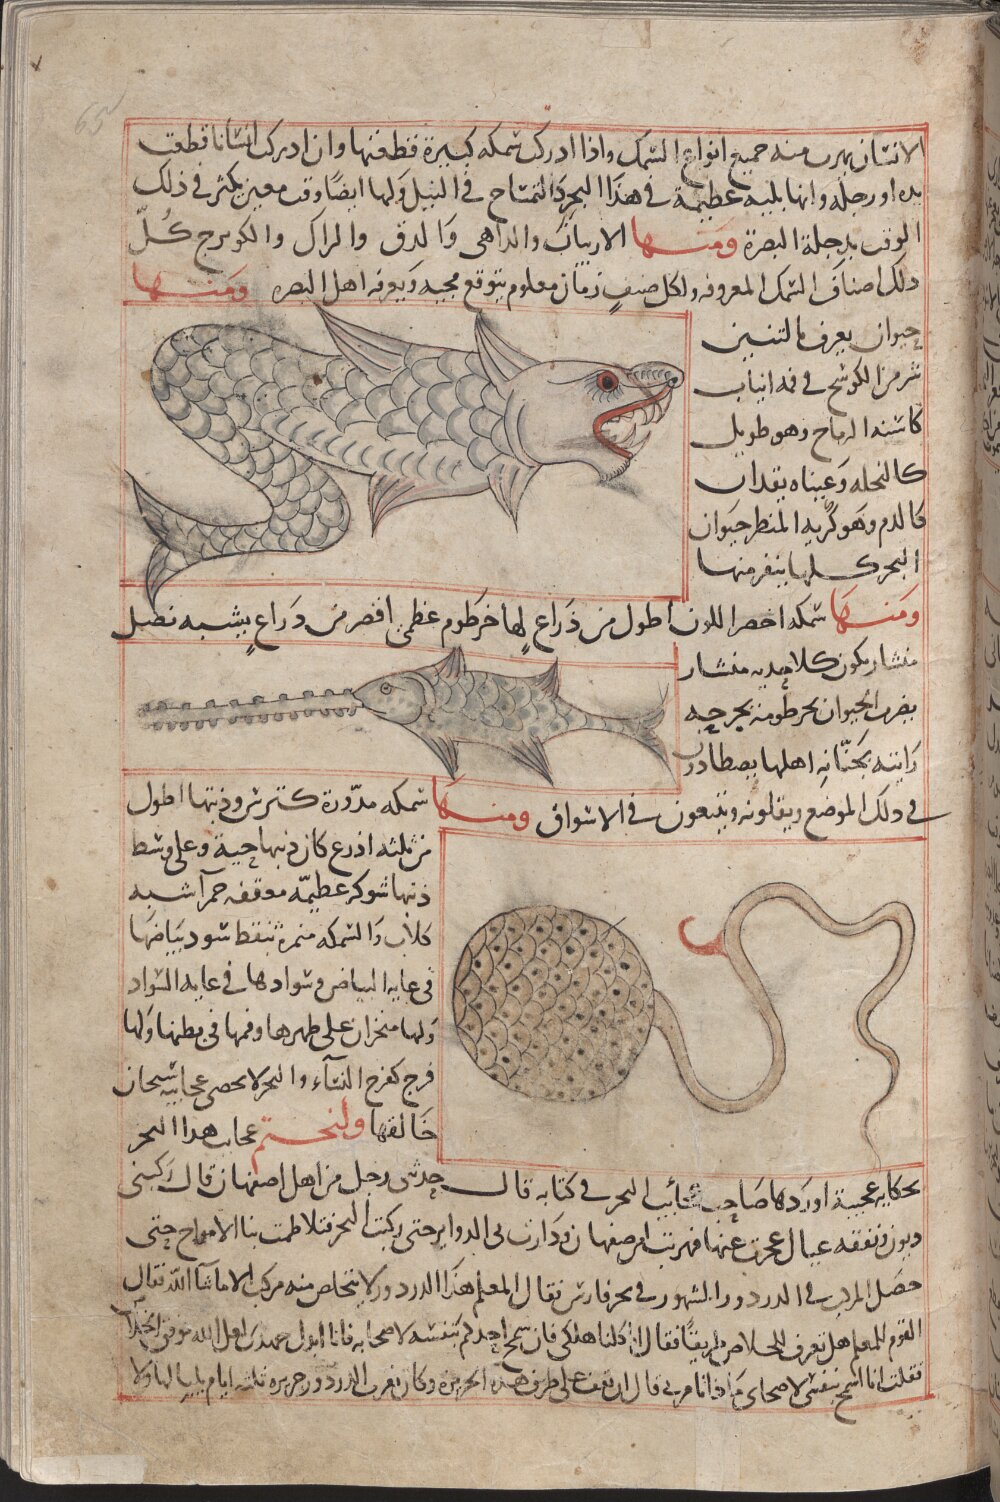 الانسان يهرب منه جميع انواع السمك واذا ادركت سمكه كبيرة قطعتها وان ادركت انسانا قطعت
يده او رجله وانها بليه عظيمة في هذا البحر كالتمساح في النيل ولها ايضا وقت معين يكثر في ذلك
الوقت بدجلة البصرة ومنها الاربيان والداهى والدق والمراك والكوبرج كل
ذلك اصناف السمك المعروفه ولكل صنف زمان معلوم يتوقع مجيه ويعرفه اهل البصره ومنها
حيوان يعرف بالتنين
شر من الكوسج في فمه انياب
كاسنة الرماح وهو طويل
كالنخله وعيناه يقدان
كالدم وهو كريه المنظر حيوان
البحر كلها ينفر منها
ومنها سمكه اخضر اللون اطول من ذراع لها خرطوم عظمى اقصر من ذراع يشبه نصل
منشار يكون كلا حديه منشار
يضرب الحيوان بخرطومه يجرحه
رايته بجنابه اهلها يصطادون
في ذلك الموضع ويقلونه ويبيعون في الاسواق ومنها سمكه مدورة كترس وذنبها اطول
من ثلثه اذرع كان ذنبها حية وعلى وسط
ذنبها شوكه عظيمه معقفه حمرا شبه
كلاب والسمكه منمرة بنقط سود بياضها
في غايه البياض وسوادها في غايه السواد
ولها منخران على ظهرها وفمها في بطنها ولها
فرج كفرج النسآء والبحر لا يحصى عجايبه سبحان
خالقها ولنختم عجايب هذا البحر
بحكاية عجيبة اوردها صاحب عجائب البحر في كتابه قال حدثنى رجل من اهل اصفهان قال ركبنى
ديون ونفقه عيال عجزت عنها فهربت من اصفهان ودارت بى الدواير حتى ركبت البحر فتلاطمت بنا الامواج حتى
حصل المركب في الدردور المشهور في بحر فارس فقال المعلم هذا الدردور لا يتخلص منه مركب الا ما شآ الله فقال
القوم للمعلم هل تعرف للخلاص طريقا فقال اذا كلنا هلكى فان سمح احدكم بنفسه لاصحابه فانا ابذل جهدى لعل الله
فقلت انا اسمح بنفسى لاصحابى فماذا تامرنى قال ان تقف على طرف هذه الجزيره وكان بقرب الدردور جزيره ثلثه ايام بلياليها ولا